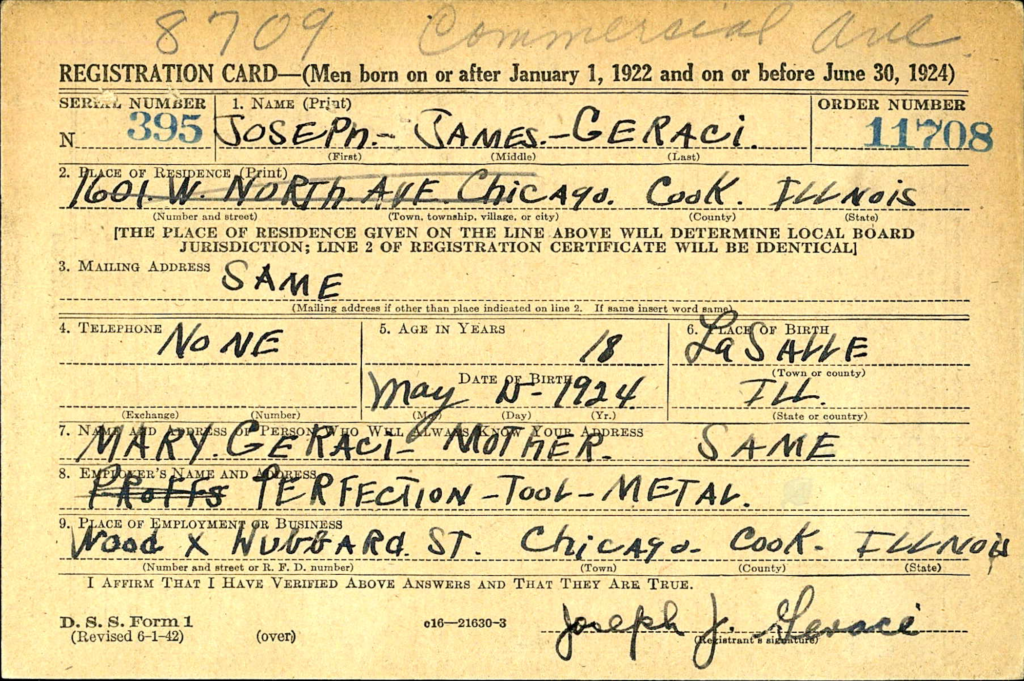 8709 Commercial Ave
REGISTRATION CARD—(Men born on or after January 1, 1922 and on or before June 30, 1924)
SERIAL NUMBER 1. NAME (Print) ORDER NUMBER
N 395 JOSEPh - JAMES - GERACi. 11708
(First) (Middle) (Last)
2. PLACE OF RESIDENCE (Print)
1601. W. NORTh. AVE. ChicAgo. CooK. ILLNois
(Number and street) (Town, township, village, or city) (County) (State)
[THE PLACE OF RESIDENCE GIVEN ON THE LINE ABOVE WILL DETERMINE LOCAL BOARD
JURISDICTION; LINE 2 OF REGISTRATION CERTIFICATE WILL BE IDENTICAL]
3. MAILING ADDRESS SAME
(Mailing address if other than place indicated on line 2. If same insert word same)
4. TELEPHONE 5. AGE IN YEARS 6. PLACE OF BIRTH
NoNE 18 LaSALLE
(Town or county)
DATE OF BIRTH
May - 1924 ILL.
(Exchange) (Number) (Mo.) (Day) (Yr.) (State or country)
7. NAME AND ADDRESS OF PERSON WHO WILL ALWAYS KNOW YOUR ADDRESS
MARY. GERACi - MOTHER. SAME
8. EMPLOYER'S NAME AND ADDRESS
PERFECTION - TOOL - METAL.
9. PLACE OF EMPLOYMENT OR BUSINESS
Wood X HUBBARd. ST. ChicAgo. CooK. ILLNois
(Number and street or R. F. D. number) (Town) (County) (State)
I AFFIRM THAT I HAVE VERIFIED ABOVE ANSWERS AND THAT THEY ARE TRUE.
D. S. S. Form 1
(Revised 6-1-42) (over) c16—21630-3 Joseph J. Geraci
(Registrant's signature)